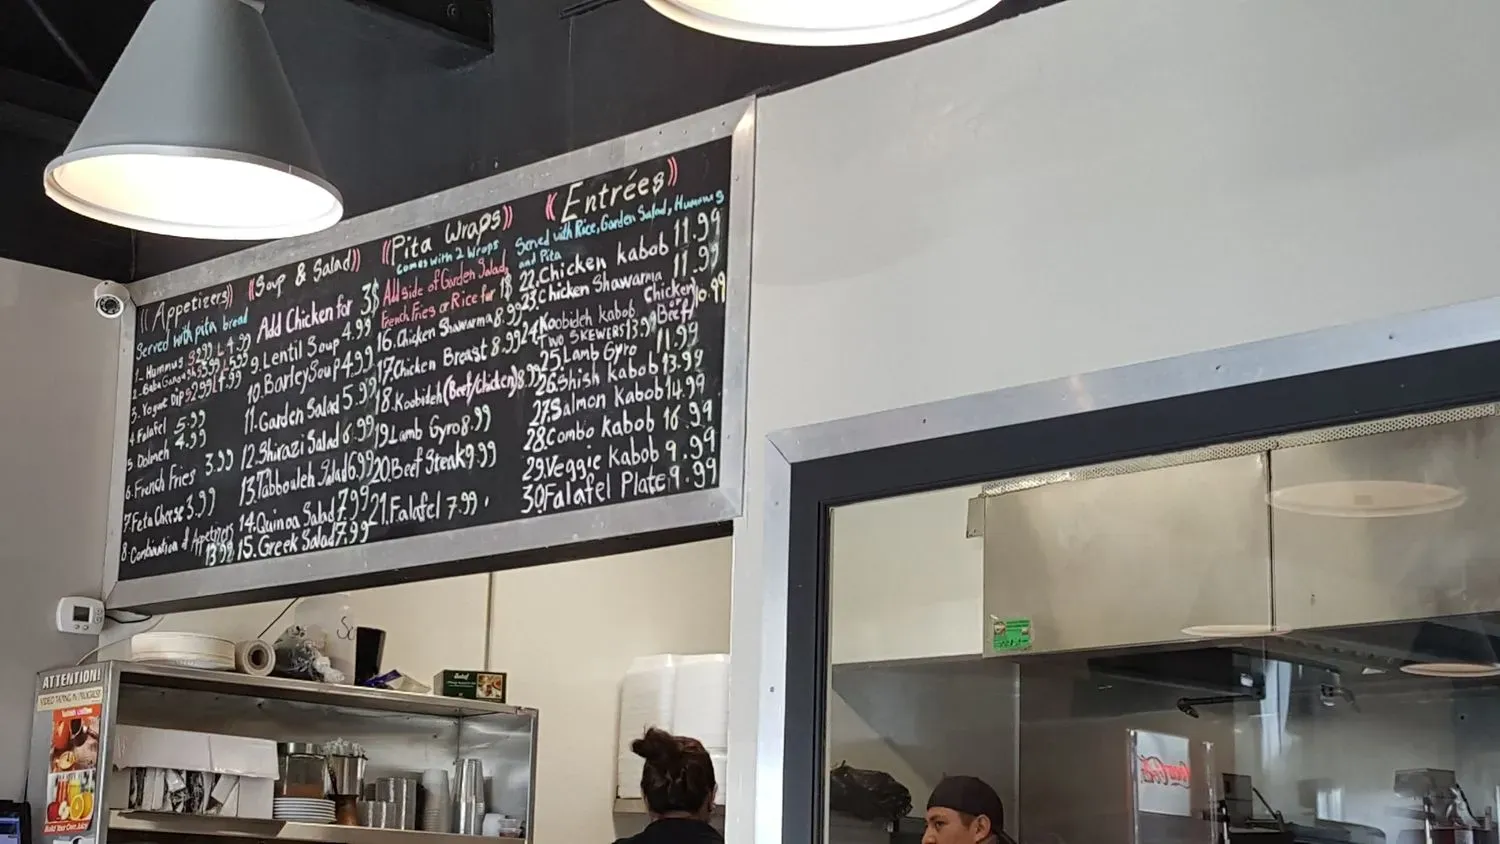 ((Appetizers))
Served with pita bread
1. Hummus S 2.99 L 4.99
2. Baba Ganoush S 3.99 L 5.99
3. Yogurt Dip S 2.99 L 4.99
4. Falafel 5.99
5. Dolmeh 4.99
6. French Fries 3.99
7. Feta Cheese 3.99
8. Combination of Appetizers
13.99
((Soup & Salad))
Add Chicken for 3$
9. Lentil Soup 4.99
10. Barley Soup 4.99
11. Garden Salad 5.99
12. Shirazi Salad 6.99
13. Tabbouleh Salad 6.99
14. Quinoa Salad 7.99
15. Greek Salad 7.99
((Pita Wraps))
comes with 2 wraps
Add side of Garden Salad,
French Fries or Rice for 1$
16. Chicken Shawarma 8.99
17. Chicken Breast 8.99
18. Koobideh (Beef/Chicken) 8.99
19. Lamb Gyro 8.99
20. Beef Steak 9.99
21. Falafel 7.99
((Entrées))
Served with Rice, Garden Salad, Hummus
and Pita
22. Chicken kabob 11.99
23. Chicken Shawarma 11.99
24. Koobideh kabob Chicken or Beef 10.99
Two SKEWERS 13.99
25. Lamb Gyro 11.99
26. Shish kabob 13.99
27. Salmon Kabob 14.99
28. Combo kabob 16.99
29. Veggie kabob 9.99
30. Falafel Plate 9.99
ATTENTION!
VIDEO TAPING IN PROGRESS
Turkish coffee
Build Your Own Juicy
Sadaf
Coca-Cola